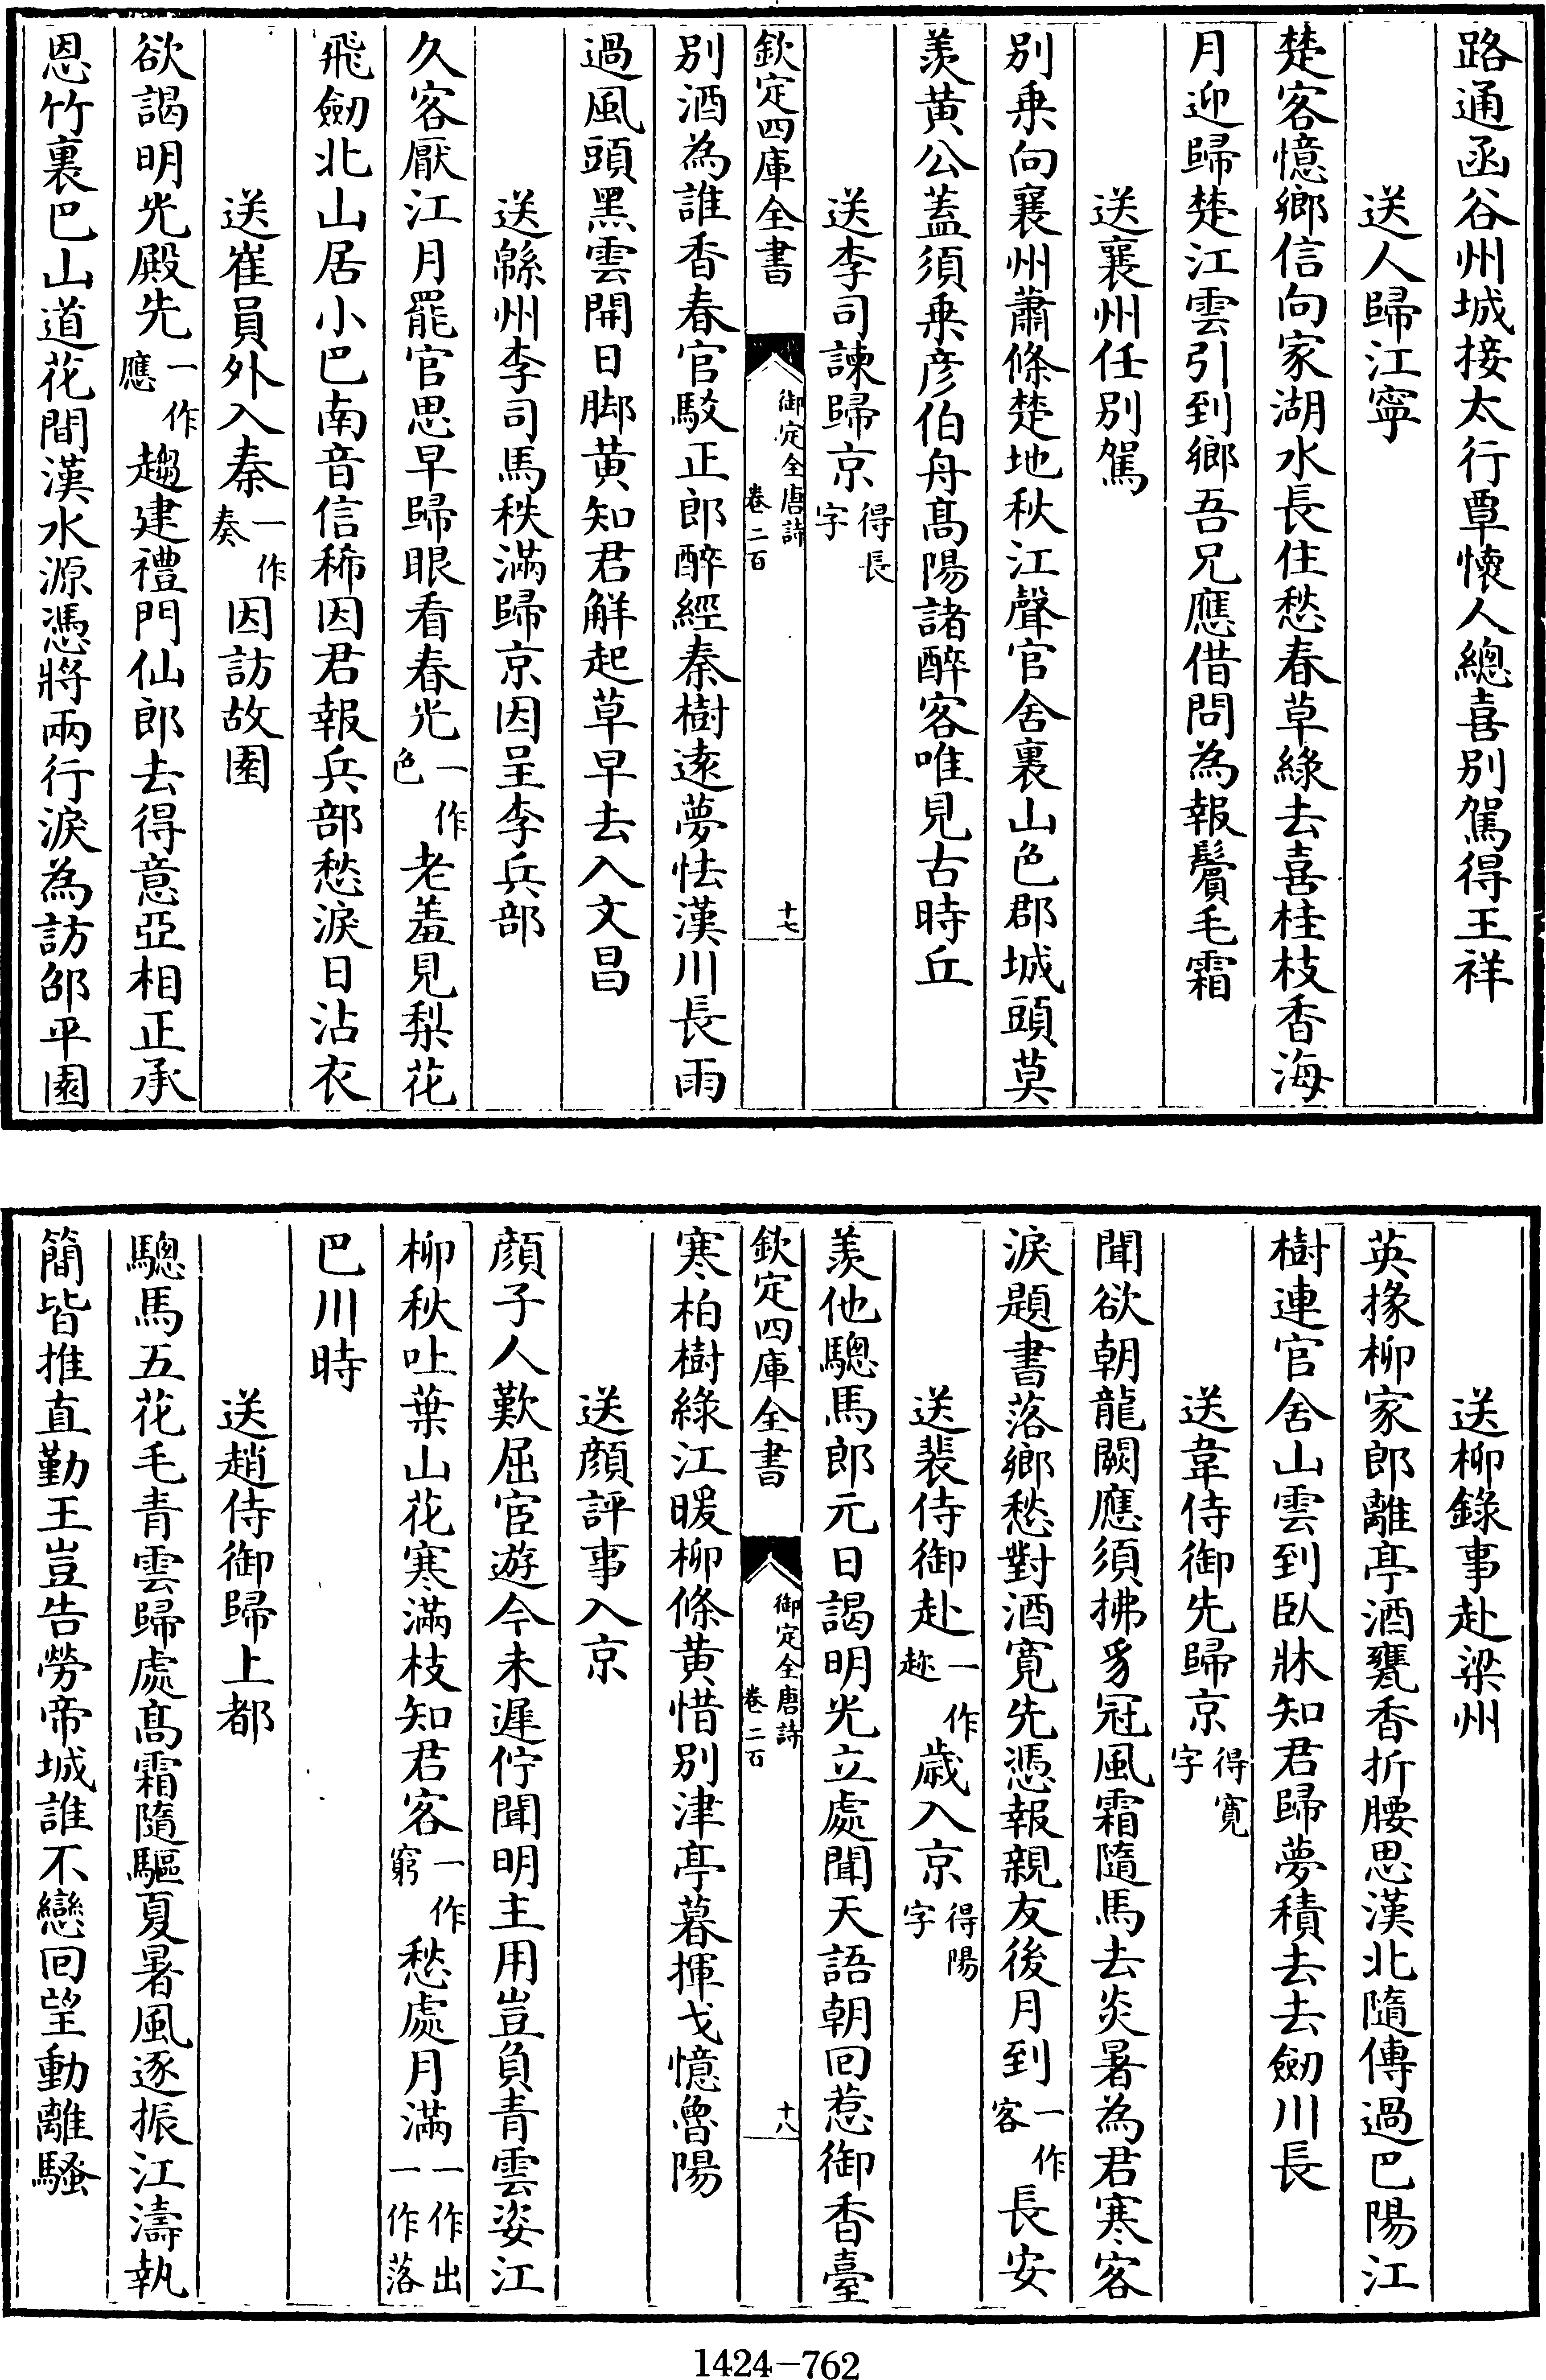 路通函谷州城接太行覃懷人總喜別駕得王祥
送人歸江寧
楚客憶鄉信向家湖水長住愁春草綠去喜桂枝香海
月迎歸楚江雲引到鄉吾兄應借問為報鬢毛霜
送襄州任別駕
別乗向襄州蕭條楚地秋江聲官舍裏山色郡城頭莫
羨黃公蓋須乗彥伯舟髙陽諸醉客唯見古時丘
送李司諫歸京得長字
欽定四庫全書
御定全唐詩
卷二百
十七
別酒為誰香春官駮正郎醉經秦樹逺夢怯漢川長雨
過風頭黑雲開日脚黃知君解起草早去入文昌
送緜州李司馬秩滿歸京因呈李兵部
久客厭江月罷官思早歸眼看春光一作色老羞見梨花
飛劒北山居小巴南音信稀因君報兵部愁淚日沾衣
送崔員外入秦一作奏因訪故園
欲謁明光殿先一作應趨建禮門仙郎去得意亞相正承
恩竹裏巴山道花間漢水源憑將兩行淚為訪邵平園
送柳錄事赴梁州
英掾柳家郎離亭酒甕香折腰思漢北隨傳過巴陽江
樹連官舍山雲到臥牀知君歸夢積去去劒川長
送韋侍御先歸京得寛字
聞欲朝龍闕應須拂豸冠風霜隨馬去炎暑為君寒客
淚題書落鄉愁對酒寛先憑報親友後月到一作客長安
送裴侍御赴一作趂歲入京得陽字
羨他驄馬郎元日謁明光立處聞天語朝回惹御香臺
欽定四庫全書
御定全唐詩
卷二百
十八
寒柏樹綠江暖柳條黃惜別津亭暮揮戈憶魯陽
送顔評事入京
顔子人歎屈宦遊今未遲佇聞明主用豈負青雲姿江
柳秋吐葉山花寒滿枝知君客一作窮愁處月滿一作出一作落
巴川時
送趙侍御歸上都
驄馬五花毛青雲歸處髙霜隨驅夏暑風逐振江濤執
簡皆推直勤王豈告勞帝城誰不戀回望動離騷
1424-762